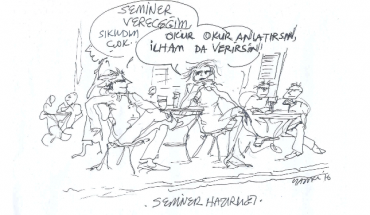 SEMİNER
VERECEĞİM,
SIKILDIM
ÇOK.
OKUR OKUR ANLATIRSIN,
İLHAM DA VERİRSİN!
. SEMİNER HAZIRLIĞI .